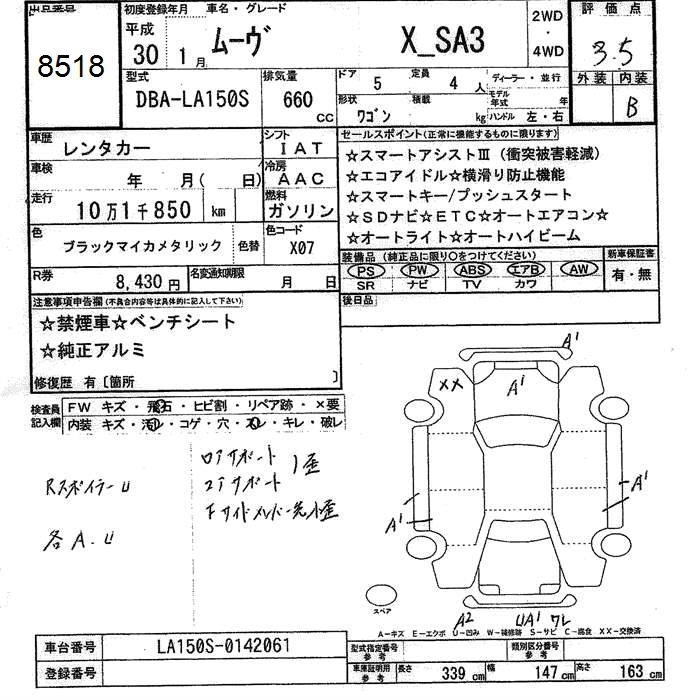 出品番号
8518
初度登録年月
平成
30 1月
車名・グレード
ムーヴ X_SA3
2WD
・
4WD
評価点
3.5
外装 内装
B
型式
DBA-LA150S
排気量
660 cc
ドア 5
定員 4人
ディーラー・並行
形状 ワゴン
積載 kg
モデル年式 年
ハンドル 左・右
車歴
レンタカー
シフト
IAT
車検
年 月( 日)
冷房
AAC
走行
10万1千850 km
燃料
ガソリン
色
ブラックマイカメタリック
色替
色コード
X07
R券 8,430円
名変通知期限 月 日
セールスポイント(正常に機能するものに限ります)
☆スマートアシストⅢ(衝突被害軽減)
☆エコアイドル☆横滑り防止機能
☆スマートキー/プッシュスタート
☆SDナビ☆ETC☆オートエアコン☆
☆オートライト☆オートハイビーム
装備品(純正品に限り○をつけてください)
PS PW ABS エアB AW
SR ナビ TV カワ
新車保証書
有・無
後日品
注意事項申告欄(不具合内容等は具体的に記入して下さい)
☆禁煙車☆ベンチシート
☆純正アルミ
修復歴 有〔箇所 〕
検査員記入欄
FW キズ・飛石・ヒビ割・リペア跡・×要
内装 キズ・汚レ・コゲ・穴・スレ・キレ・破レ
Rスポイラーu
各A.u
ロアサポート 1歪
コアサポート
FサイドメンバーC先小歪
A1
XX
A1
A1
A1
スペア
A2 UA1 ワレ
A-キズ E-エクボ U-凹み W-補修跡 S-サビ C-腐食 XX-交換済
車台番号
LA150S-0142061
登録番号
型式指定番号 参考
類別区分番号 参考
車庫証明用 参考
長さ 339 cm
幅 147 cm
高さ 163 cm